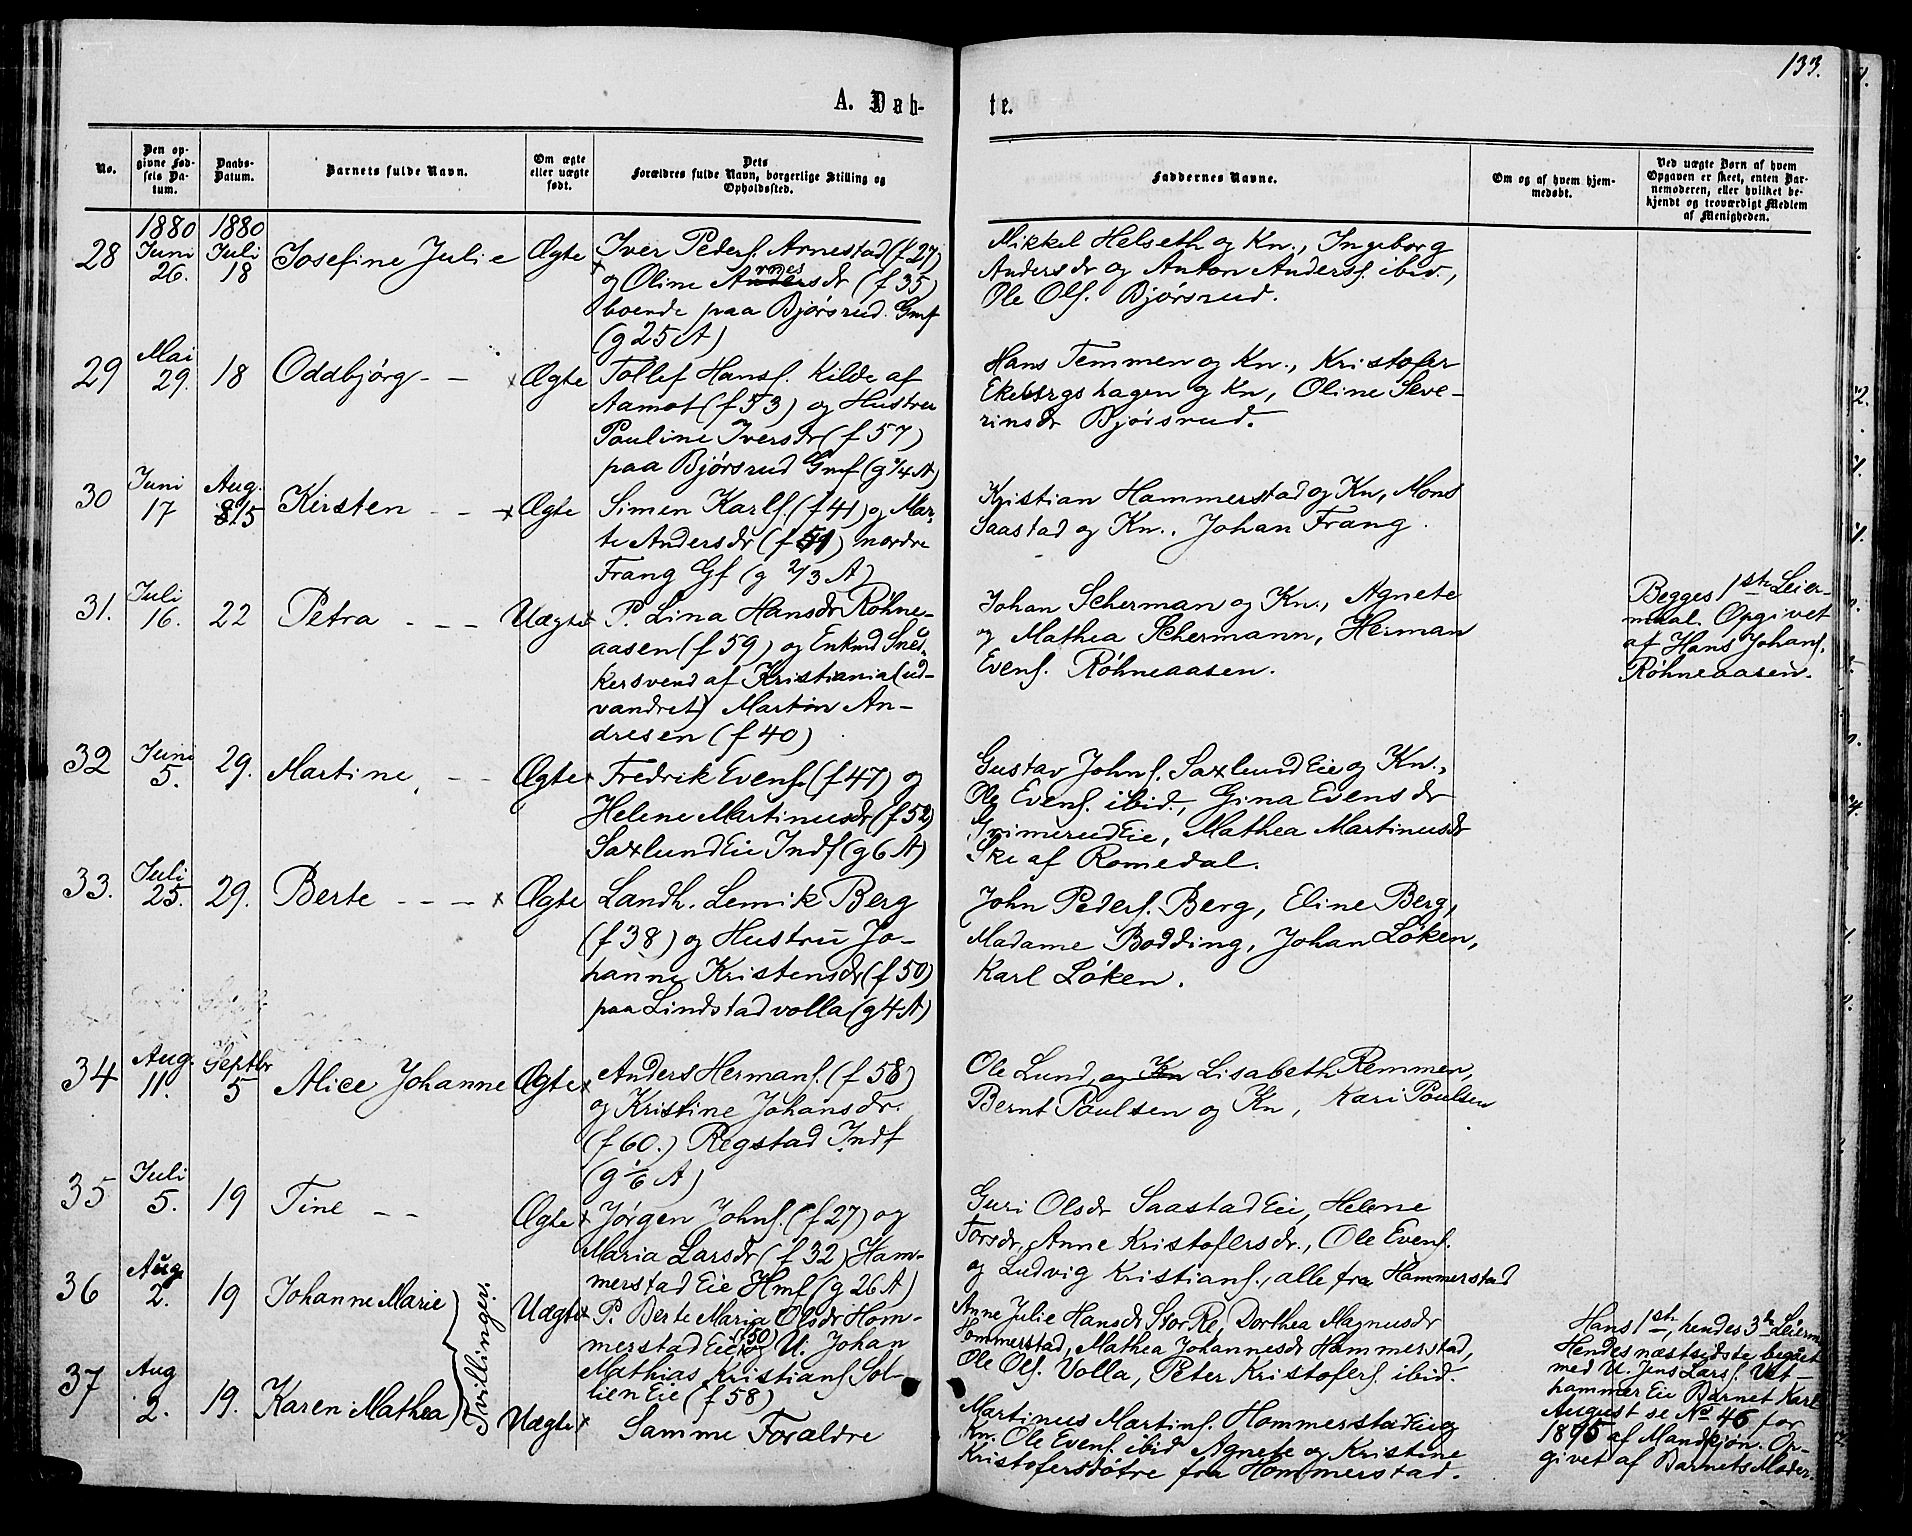 133.
A. Døb-
te.
No.
Den op-
givne Fød-
sels Da-
tum.
Daabs-
Datum.
Barnets fulde Navn.
Om ægte
eller uægte
født.
Dets
Forældres fulde Navn, borgerlige Stilling og
Opholdssted.
Faddernes Navne.
Om og af hvem hjem-
medøbt.
Ved uægte Børn af hvem
Opgaven er skeet, enten Bar-
nemoderen, eller hvilket be-
kjendt og troværdigt Medlem
af Menigheden.
28
1880
Juni
26.
1880
Juli
18
Josefine Julie
Ægte
Iver Peders. Arnestad (f 27)
og Oline Andersdr (f 35)
boende paa Bjørsrud Gmf
(g 25 A)
Mikkel Helseth og Kn., Ingeborg
Andersdr og Anton Anders. ibid.,
Ole Ols. Bjørsrud.
29
Mai
29.
18
Oddbjørg - -
Ægte
Tollef Hans. Kilde af
Aamot (f 53) og Hustru
Pauline Iversdr (f 57)
paa Bjørsrud Gmf (g 1/4 A)
Hans Temmen og Kn., Kristofer
Ekebergshagen og Kn, Oline Seve-
rinsdr Bjørsrud.
30
Juni
17
Aug.
15
Kirsten - - -
Ægte
Simen Karls. (f 41) og Mar-
te Andersdr (f 51) nordre
Frang Gf (g 2/3 A)
Kristian Hammerstad og Kn, Mons
Saastad og Kn., Johan Frang.
31.
Juli
16.
22
Petra - - -
Uægte
P. Lina Hansdr Røhne-
aasen (f 59) og Enkmd Sned-
kersvend af Kristiania (ud-
vandret) Martin An-
dresen (f 40)
Johan Scherman og Kn., Agnete
og Mathea Schermann, Herman
Evens. Røhneaasen.
Begges 1ste Leier-
maal. Opgivet
af Hans Johans.
Røhneaasen.
32
Juni
5.
29.
Martine - -
Ægte
Fredrik Evens. (f 47) og
Helene Martinusdr (f 52)
Saxlund Eie Indf (g 6 A)
Gustav Johns. Saxlund Eie og Kn.,
Ole Evens. ibid., Gina Evensdr
Grimerud Eie, Mathea Martinusdr
Ske af Romedal.
33.
Juli
25.
29.
Berte - - -
Ægte
Landh. Lemik Berg
(f 38) og Hustru Jo-
hanne Kristensdr (f 50)
paa Lindstadvolla (g 4 A)
John Peders. Berg, Eline Berg,
Madame Bodding, Johan Løken,
Karl Løken.
34
Aug.
11.
Septbr
5
Alice Johanne
Ægte
Anders Hermans. (f 58)
og Kristine Johansdr.
(f 60.) Regstad Indf
(g 1/6 A)
Ole Lund, og Kn Lisabeth Remmen,
Bernt Paulsen og Kn, Kari Poulsen
35
Juli
5.
19
Tine - -
Ægte
Jørgen Johns. (f 27) og
Maria Larsdr (f 32) Ham-
merstad Eie Hmf (g 26 A)
Guri Olsdr Saastad Eie, Helene
Torsdr, Anne Kristofersdr., Ole Evens.
og Ludvig Kristians., alle fra Hammerstad
36
Aug.
2.
19
Johanne Marie
Tvillinger.
Uægte
P. Berte Maria Olsdr Hom-
merstad Eie (f 50) og U. Johan
Mathias Kristians. Sol-
lien Eie (f 58)
Anne Julie Hansdr StorRe, Dorthea Magnusdr
Hommerstad, Mathea Johannesdr Hammerstad,
Ole Ols. Volla, Peter Kristofers. ibid.
Hans 1ste, hendes 3die Leierm.
Hendes næstsidste begaaet
med U. Jens Lars. Vet-
hammer Eie Barnet Karl
August se No 46 for
1875 af Mandkjøn. Op-
givet af Barnets Moder.
37
Aug
2.
19.
Karen Mathea
Uægte
Samme Forældre
Martinus Martins. Hommerstad Eie og
Kn. Ole Evens. ibid Agnete og Kristine
Kristofersdøtre fra Hommerstad.